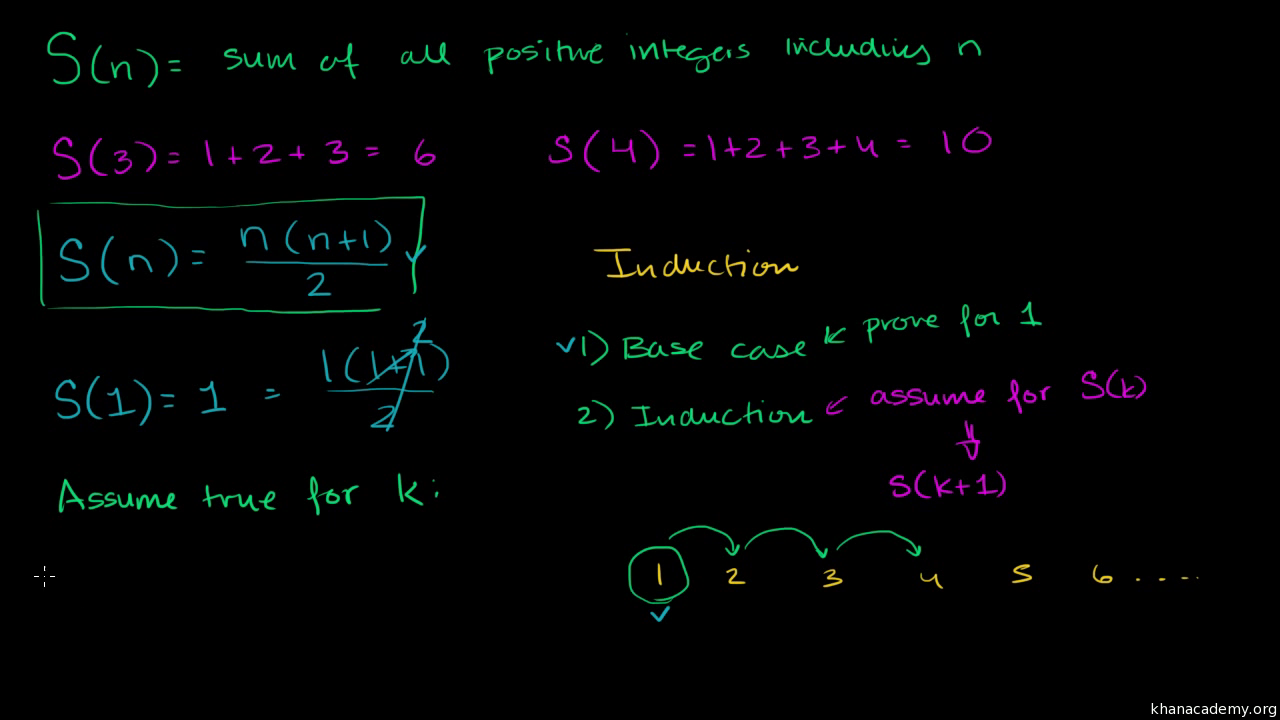 S(n) = sum of all positive integers including n
S(3) = 1 + 2 + 3 = 6
S(4) = 1+2+3+4 = 10
S(n) = n(n+1)/2
S(1) = 1 = 1(1+1)/2
2
Assume true for k:
Induction
✓1) Base case ← prove for 1
2) Induction ← assume for S(k)
⇓
S(k+1)
1 2 3 4 5 6 ....
✓
khanacademy.org